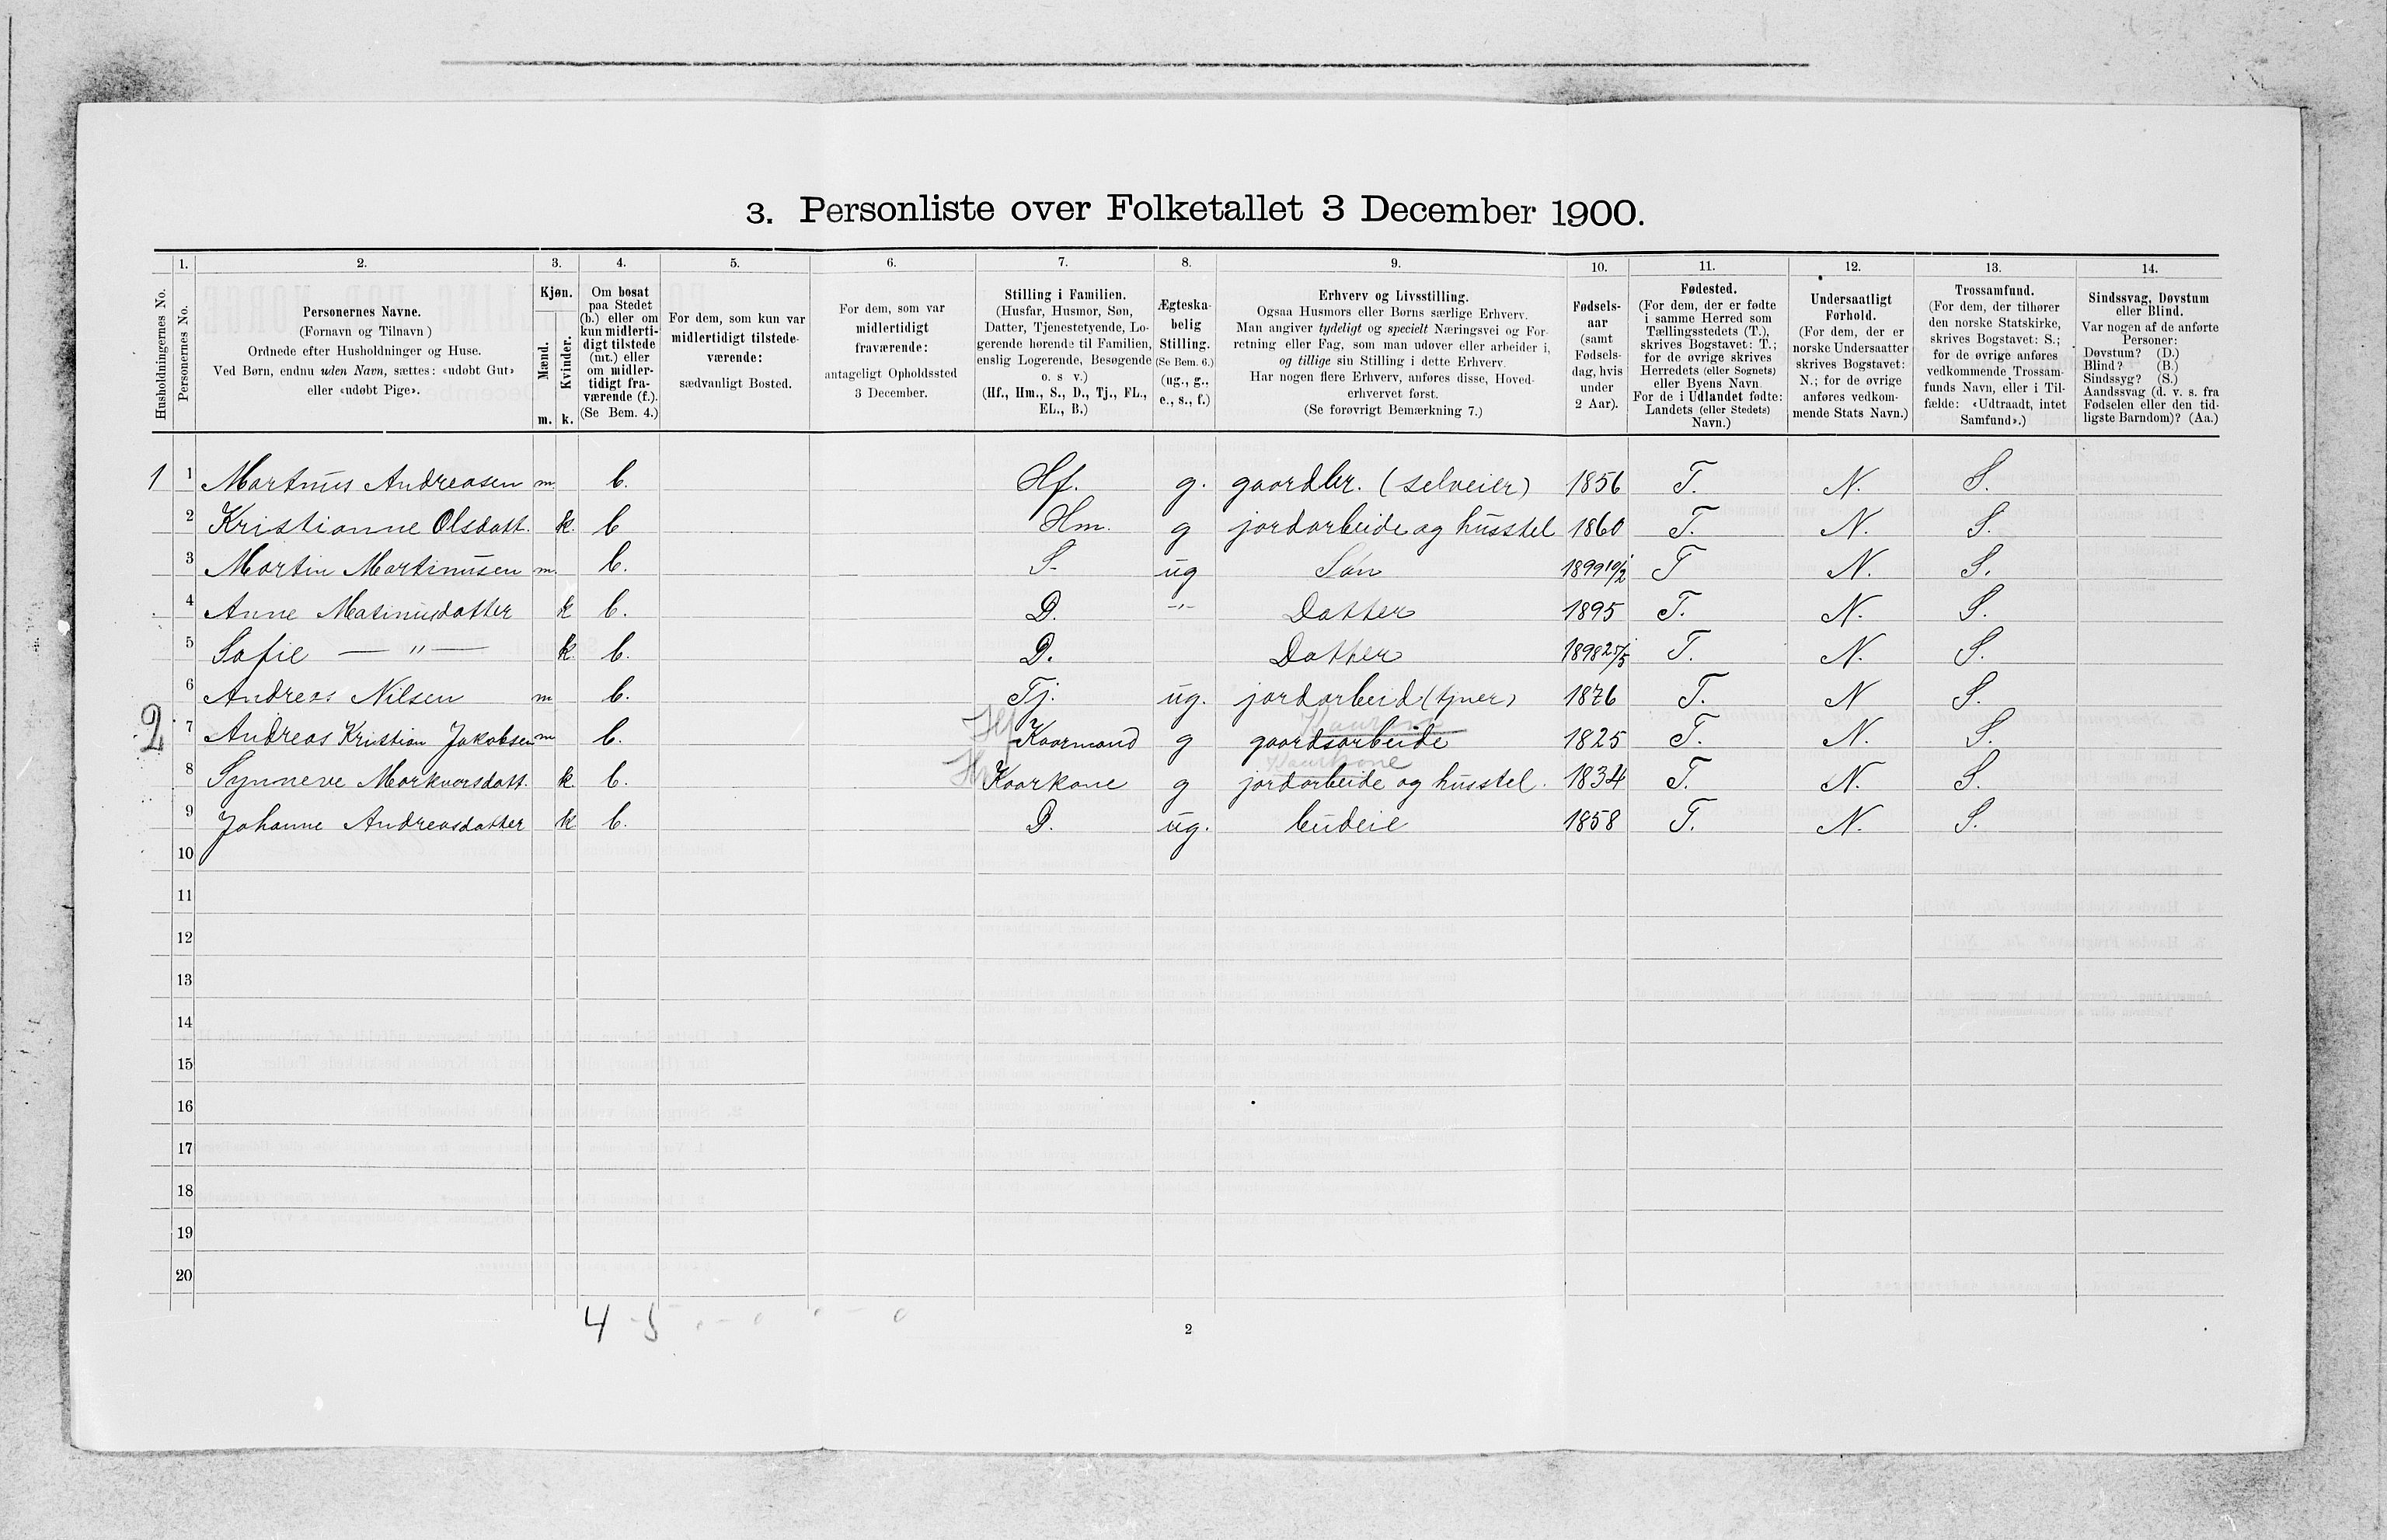 3. Personliste over Folketallet 3 December 1900.
Husholdningernes No.
1.
Personernes No.
2.
Personernes Navne.
(Fornavn og Tilnavn)
Ordnede efter Husholdninger og Huse.
Ved Børn, endnu uden Navn, sættes: «udøbt Gut»
eller «udøbt Pige».
3.
Kjøn.
Mænd.
Kvinder.
m. k.
4.
Om bosat
paa Stedet
(b.) eller om
kun midlerti-
digt tilstede
(mt.) eller
om midler-
tidigt fra-
værende (f.).
(Se Bem. 4.)
5.
For dem, som kun var
midlertidigt tilstede-
værende:
sædvanligt Bosted.
6.
For dem, som var
midlertidigt
fraværende:
antageligt Opholdssted
3 December.
7.
Stilling i Familien.
(Husfar, Husmor, Søn,
Datter, Tjenestetyende, Lo-
gerende hørende til Familien,
enslig Logerende, Besøgende
o. s. v.)
(Hf., Hm., S., D., Tj., FL.,
EL., B.)
8.
Ægteska-
belig
Stilling.
(Se Bem. 6.)
(ug., g.,
e., s., f.)
9.
Erhverv og Livsstilling.
Ogsaa Husmors eller Børns særlige Erhverv.
Man angiver tydeligt og specielt Næringsvei og For-
retning eller Fag, som man udøver eller arbeider i,
og tillige sin Stilling i dette Erhverv.
Har nogen flere Erhverv, anføres disse, Hoved-
erhvervet først.
(Se forøvrigt Bemærkning 7.)
10.
Fødsels-
aar
(samt
Fødsels-
dag, hvis
under
2 Aar).
11.
Fødested.
(For dem, der er fødte
i samme Herred som
Tællingsstedets (T.),
skrives Bogstavet: T.;
for de øvrige skrives
Herredets (eller Sognets)
eller Byens Navn.
For de i Udlandet fødte:
Landets (eller Stedets)
Navn.)
12.
Undersaatligt
Forhold.
(For dem, der er
norske Undersaatter
skrives Bogstavet:
N.; for de øvrige
anføres vedkom-
mende Stats Navn.)
13.
Trossamfund.
(For dem, der tilhører
den norske Statskirke,
skrives Bogstavet: S.;
for de øvrige anføres
vedkommende Trossam-
funds Navn, eller i Til-
fælde: «Udtraadt, intet
Samfund».)
14.
Sindssvag, Døvstum
eller Blind.
Var nogen af de anførte
Personer:
Døvstum? (D.)
Blind? (B.)
Sindssyg? (S.)
Aandssvag (d. v. s. fra
Fødselen eller den tid-
ligste Barndom)? (Aa.)
1 1 Martnus Andreasen m. b. Hf. g. gaardbr. (selveier) 1856 T. N. S.
2 Kristianne Olsdatt. k. b Hm. g jordarbeide og husstel 1860 T. N. S.
3 Martin Martinusen m. b. S. ug Søn 1899 10/2 T N. S.
4 Anne Matinusdatter k b. D. -"- Datter 1895 T. N. S.
5 Sofie — " — k. b. D. Datter 1898 25/5 T. N. S.
6 Andreas Nilsen m b. Tj. ug. jordarbeid (tjner) 1876 T. N S.
2 7 Andreas Kristian Jakobsen m b. Hf Kaarmand g gaardsarbeide 1825 T. N. S.
Kaarkone
8 Synneve Markvorsdatt. k. b. Hm Kaarkone g jordarbeide og husstel. 1834 T. N. S.
9 Johanne Andreasdatter k b. D. ug. budeie 1858 T. N. S.
10
11
12
13
14
15
16
17
18
19
20
4 - 5
2